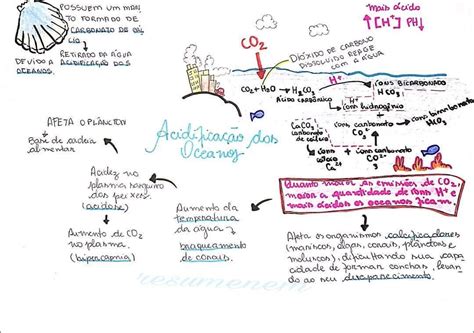 POSSUEM UM MAN
TO FORMADO DE
CARBONATO DE CÁL
CIO
RETIRADO DA ÁGUA
DEVIDO A ACIDIFICAÇÃO DOS
OCEANOS.
mais ácido
↑[H⁺] PH↓
CO₂
DIÓXIDO DE CARBONO
DISSOLVIDO REAGE
COM A ÁGUA
CO₂ + H₂O → H₂CO₃
Ácido carbônico
H⁺
íons bicarbonato
HCO₃⁻
íons hidrogênio
+
íons carbonato
íons bicarbonato
HCO₃
CaCO₃
carbonato
de cálcio
íons
cálcio
Ca²⁺
+
íons carbonato
CO₃²⁻
Acidificação dos
Oceanos
AFETA O PLÂNCTON
Base da cadeia
alimentar
Acidez no
plasma sanguíneo
dos peixes.
(acidose)
Aumento de CO₂
no plasma.
(hipercapnia)
Aumento da
temperatura
da água
branqueamento
de corais.
Quanto maior as emissões de CO₂,
maior a quantidade de íons H⁺ e
mais ácidos os oceanos ficam.
Afeta organismos calcificadores
(mariscos, algas, corais, plânctons e
moluscos), dificultando sua capa
cidade de formar conchas, levan
do ao seu desaparecimento.
resumenem